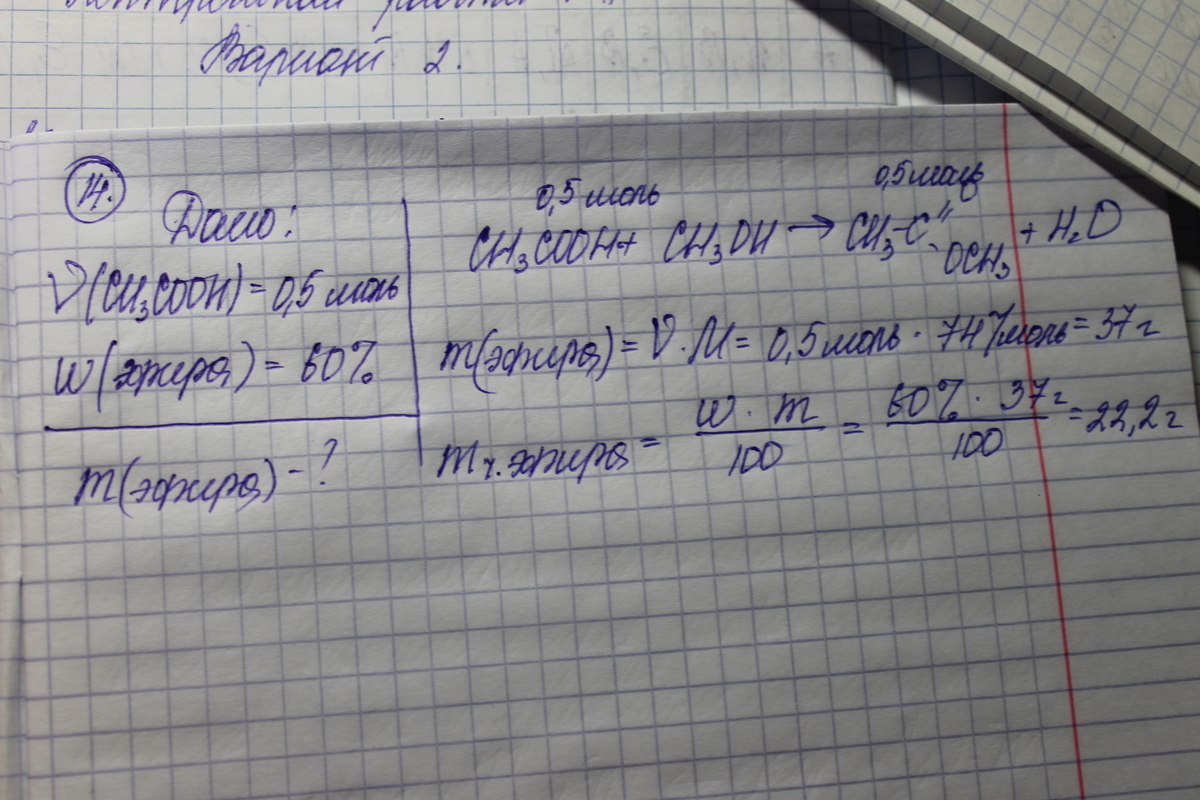 Контрольная работа
Вариант 2.
14.
Дано:
ν(CH₃COOH) = 0,5 моль
w(эфира) = 60%
m(эфира) - ?
0,5 моль 0,5 моль
CH₃COOH + CH₃OH → CH₃-C" -OCH₃ + H₂O
m(эфира) = ν · M = 0,5 моль · 74 г/моль = 37 г
m ч. эфира = w · m / 100 = 60% · 37 г / 100 = 22,2 г